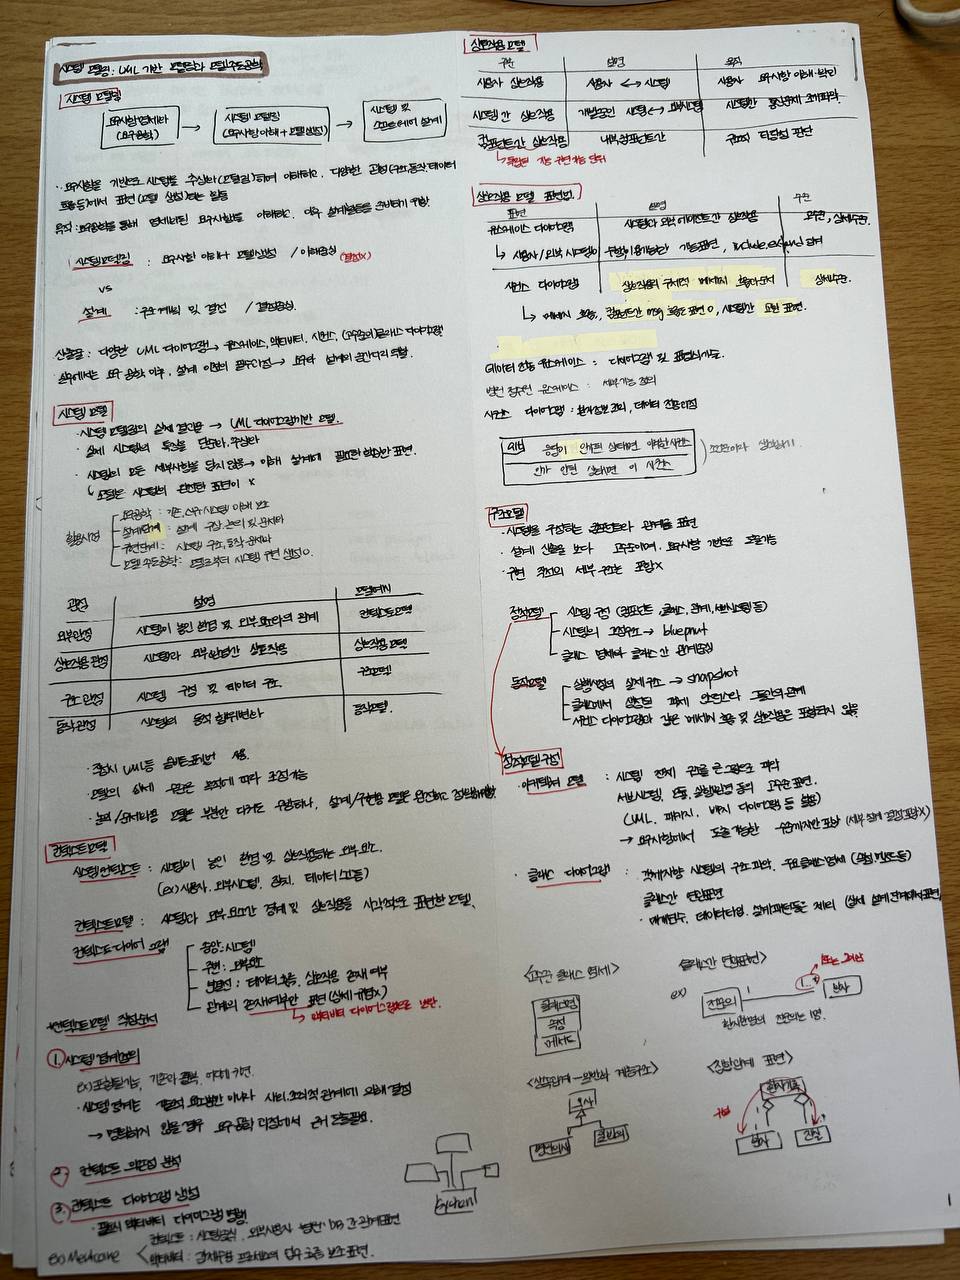 시스템 모델링: UML 기반 모델링과 모델주도공학
시스템 모델링
요구사항 명세화
(요구공학)
시스템 모델링
(요구사항 이해 + 모델 생성)
시스템 및
소프트웨어 설계
· 요구사항을 기반으로 시스템을 추상화(모델링)하여 이해하고, 다양한 관점(구조,동작,데이터
흐름 등)에서 표현(모델 생성)하는 활동
목적: 요구공학을 통해 명세화된 요구사항을 이해하고, 이후 설계활동을 준비하기 위함
시스템모델링 : 요구사항 이해 + 모델생성 / 이해중심 (결정X)
vs
설계 : 구조 계획 및 결정 / 결정중심
산출물 : 다양한 UML 다이어그램 → 유스케이스, 액티비티, 시퀀스, (고수준의)클래스 다이어그램
· 실무에서는 요구 공학 이후, 설계 이전의 필수과정 → 요구와 설계의 중간다리 역할.
시스템 모델
· 시스템 모델링의 실제 결과물 → UML 다이어그램기반 모델.
· 실제 시스템의 특징을 단순화, 추상화
· 시스템의 모든 세부사항을 담지 않음 → 이해, 설계에 필요한 핵심만 표현.
↳ 모델은 시스템의 완전한 표현이 X
활용시점
요구공학 : 기존, 신규 시스템 이해 보조
설계단계 : 설계 구상, 논의 및 문서화
구현단계 : 시스템 구조, 동작 문서화
모델 주도공학 : 모델로부터 시스템 구현 생성 O.
관점 설명 모델예시
외부관점 시스템이 놓인 환경 및 외부 요소와의 관계 컨텍스트모델
상호작용 관점 시스템과 외부환경간 상호작용 상호작용 모델
구조 관점 시스템 구성 및 데이터 구조 구조모델
동작 관점 시스템의 동적 행위변화 동작모델.
· 모델의 상세 수준은 목적에 따라 조정가능
컨텍스트모델
시스템 컨텍스트 : 시스템이 놓인 환경 및 상호작용하는 외부 요소.
(ex) 사용자, 외부시스템, 장치, 데이터 소스등)
컨텍스트모델 : 시스템과 외부 요소간 경계 및 상호작용을 시각적으로 표현한 모델.
컨텍스트 다이어그램
중앙: 시스템
주변 : 외부요소
연결선 : 데이터 흐름, 상호작용 존재 여부
관계의 존재여부만 표현 (상세 규칙X)
↳ 액티비티 다이어그램으로 보완.
*컨텍스트모델 작성순서
① 시스템 경계정의
· 시스템 경계는 기술적 요인뿐만 아니라 사회 조직적 관계에 의해 결정
→ 명확하지 않을 경우 요구공학 과정에서 근거 도출필요.
② 컨텍스트 의존성 분석
③ 컨텍스트 다이어그램 생성
· 필요시 액티비티 다이어그램 병행.
ex) Mentcare
컨텍스트 : 시스템중심, 외부사용자 병원 DB 간 관계표현
액티비티 : 강제구금 프로세스의 업무 흐름 보조 표현.
System
상호작용 모델
구분 설명 목적
사용자 상호작용 사용자 ↔ 시스템 사용자 요구사항 이해·분석
시스템 간 상호작용 개발중인 시스템 ↔ 외부시스템 시스템간 통신문제 조기파악.
컴포넌트간 상호작용 내부컴포넌트간 구조의 타당성 판단
↳ 독립된 기능 구현 가능 단위
상호작용 모델 표현법
표현 설명 수준
유스케이스 다이어그램 시스템과 외부 에이전트간 상호작용 고수준, 상세수준.
↳ 사용자/외부 시스템이 수행,이용가능한 기능표현, include, extend 관계
시퀀스 다이어그램 상호작용의 구체적 메세지 흐름과 순서 상세수준.
↳ 메세지 흐름, 컴포넌트간 msg 흐름도 표현 O, 시스템간 교환 표현.
데이터 전송 유스케이스 : 다이어그램 및 표형식가능.
병원 접수원 유스케이스 : 세부기능 정의
시퀀스 다이어그램 : 환자정보 조회, 데이터 전송과정
대체 응답이 인가된 상태면 이러한 시퀀스
인가 안된 상태면 이 시퀀스
구조모델
· 시스템을 구성하는 컴포넌트와 관계를 표현
· 설계 산출물 보다 고수준이며, 요구사항 기반으로 도출가능
· 구현 목적의 세부 구조는 포함X
정적모델
시스템 구성 (컴포넌트, 클래스, 관계, 서브시스템 등)
시스템의 고정구조 → blueprint
클래스 명세와 클래스 간 관계중심
동적모델
실행시점의 실제구조 → snapshot
클래스에서 생성된 객체 인스턴스와 그들간의 관계
시퀀스 다이어그램과 같은 메세지 흐름 및 상호작용은 포함되지 않음.
정적모델 구성
· 아키텍처 모델 : 시스템 전체 구조를 큰그림으로 파악
서브시스템, 모듈, 실행환경 등의 고수준 표현.
(UML, 패키지, 배치 다이어그램 등 활용)
→ 요구사항에서 도출 가능한 수준까지만 포함 (세부 설계 결정 포함X)
· 클래스 다이어그램 : 객체지향 시스템의 구조 파악, 주요 클래스 명세 (속성, 메서드 등)
클래스간 연관표현
· 매개변수, 데이터타입, 설계패턴등은 제외 (상세 설계 단계에서 표현)
<고수준 클래스 명세>
클래스명
속성
메서드
<클래스간 연관표현>
1또는 그이상
ex) 전문의 1 1..* 환자
환자한명의 전문의는 1명.
<상속관계 - 일반화 계층구조>
의사
병원의사
일반의
<집합관계 표현>
환자기록
환자
진찰
1